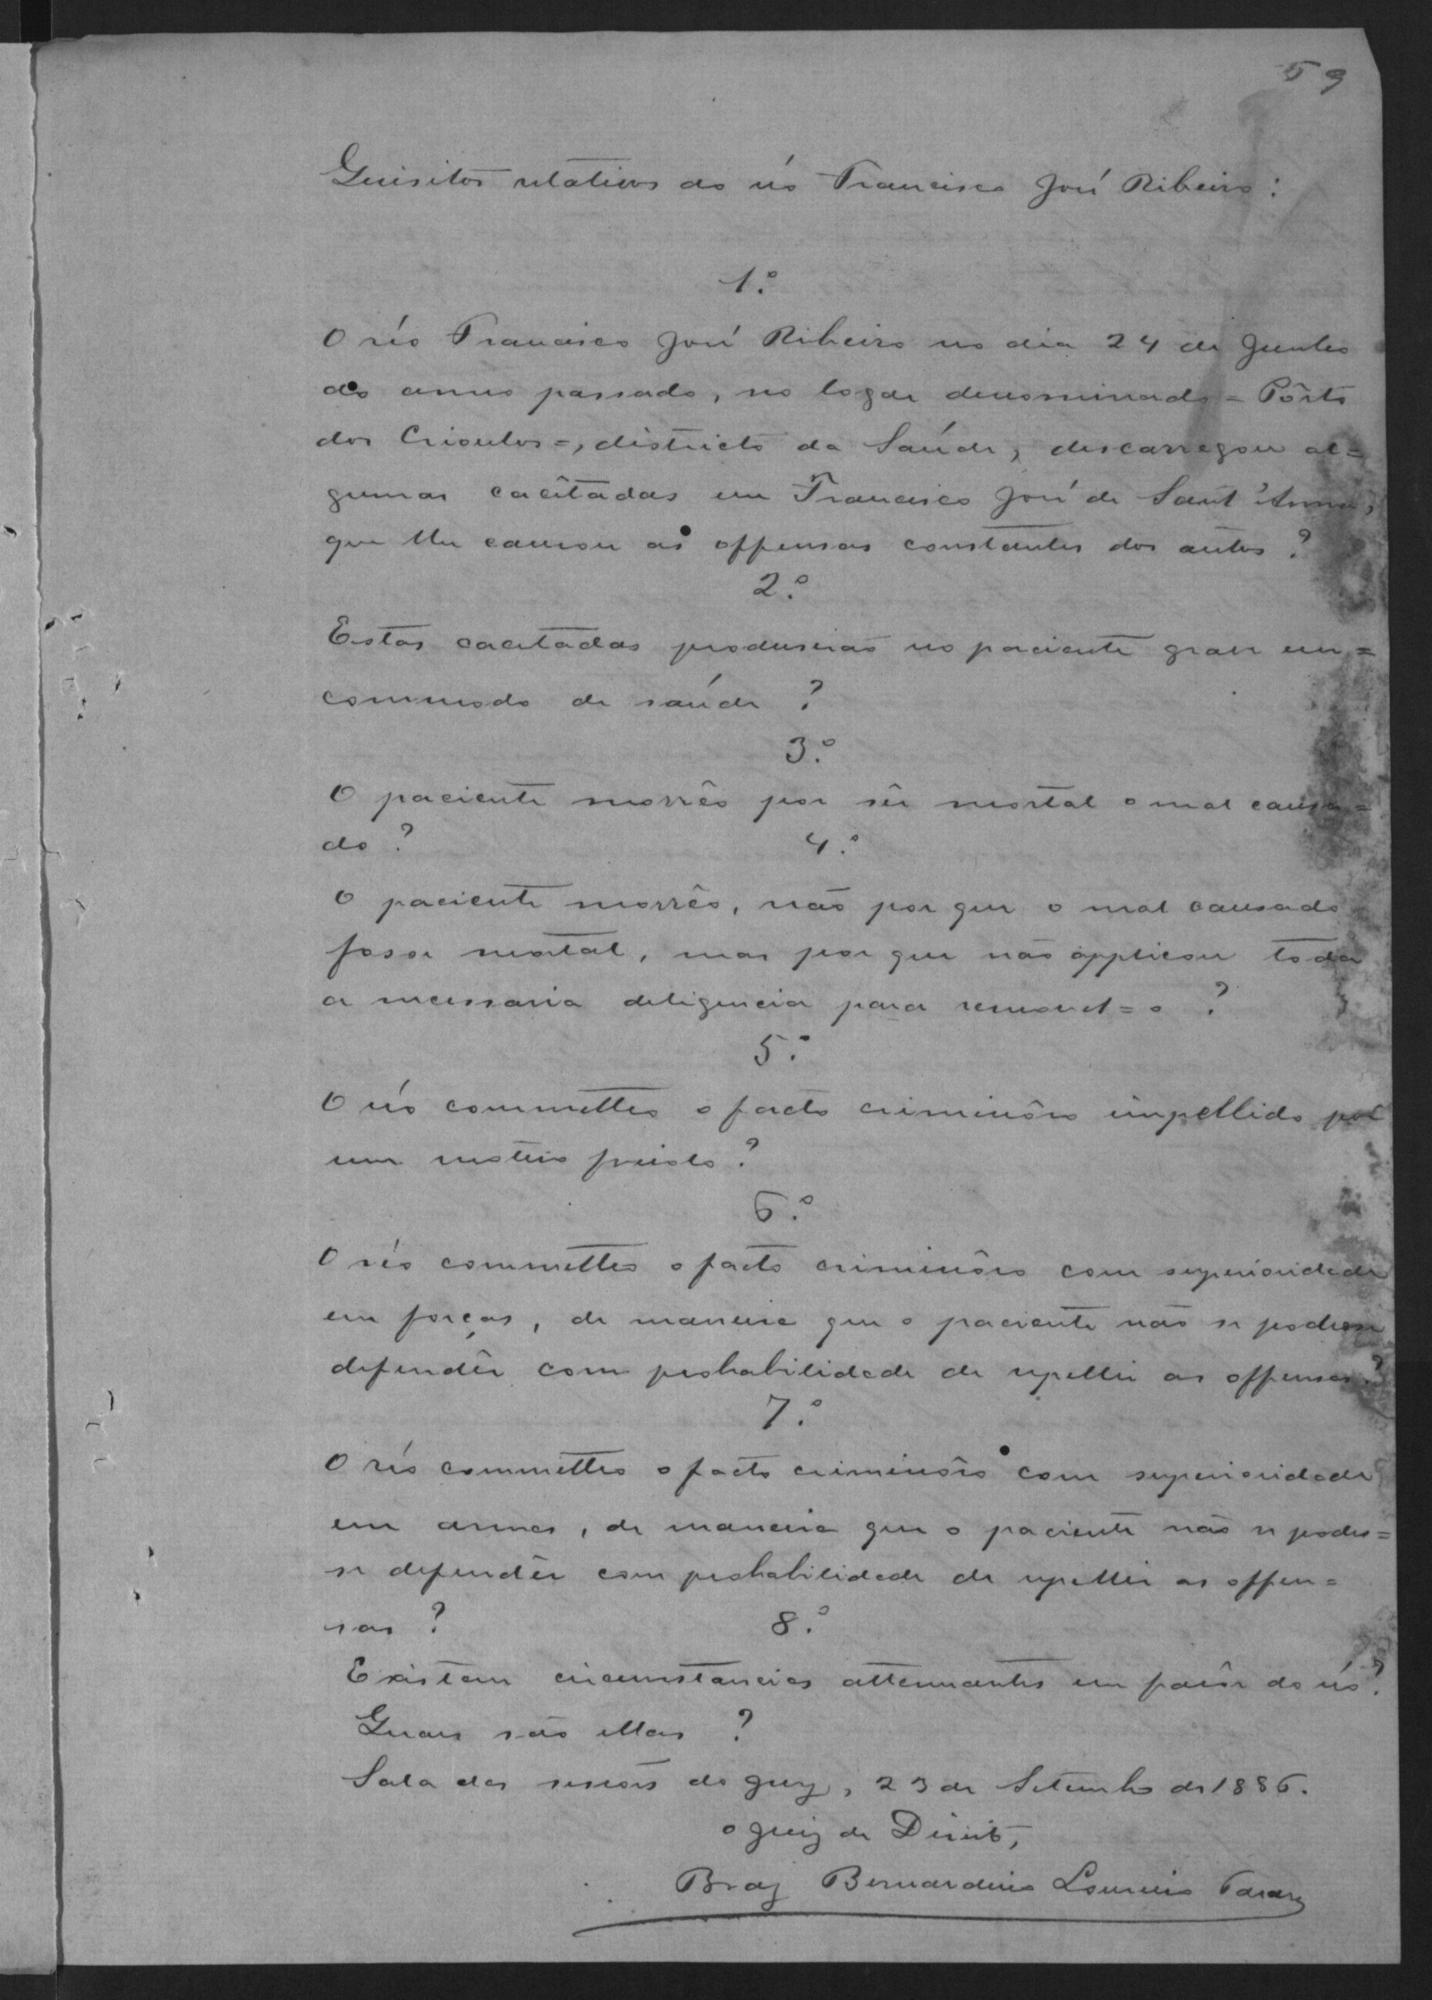 59
Quisitos relativos ao réo Francisco José Ribeiro:
1.º
O réo Francisco José Ribeiro no dia 24 de Junho
do anno passado, no logar denominado = Pôrto
dos Crioulos =, districto da Saúde, descarregou al=
gumas cacêtadas em Francisco José de Sant'Anna,
que lhe causou as offensas constantes dos autos?
2.º
Estas cacetadas produsirão no paciente grave in=
commodo de saúde?
3.º
O paciente morrêo por sêr mortal o mal causa=
do?
4.º
O paciente morrêo, não por que o mal causado
fosse mortal, mas por que não applicou toda
a necessaria deligencia para removel=o?
5.º
O réo commetteo o facto criminôso impellido por
um motivo frivolo?
6.º
O réo commetteo o facto criminôso com superioridade
em forças, de maneira que o paciente não se podesse
defendêr com probabilidade de repellir as offensas?
7.º
O réo commetteo o facto criminôso com superioridade
em armas, de maneira que o paciente não se podes=
se defendêr com probabilidade de repellir as offen=
sas?
8.º
Existem circumstancias attenuantes em favôr do réo?
Quaes são ellas?
Sala das sessões do jury, 23 de Setembro de 1886.
O Juiz de Direito,
Braz Bernardino Loureiro Tavares